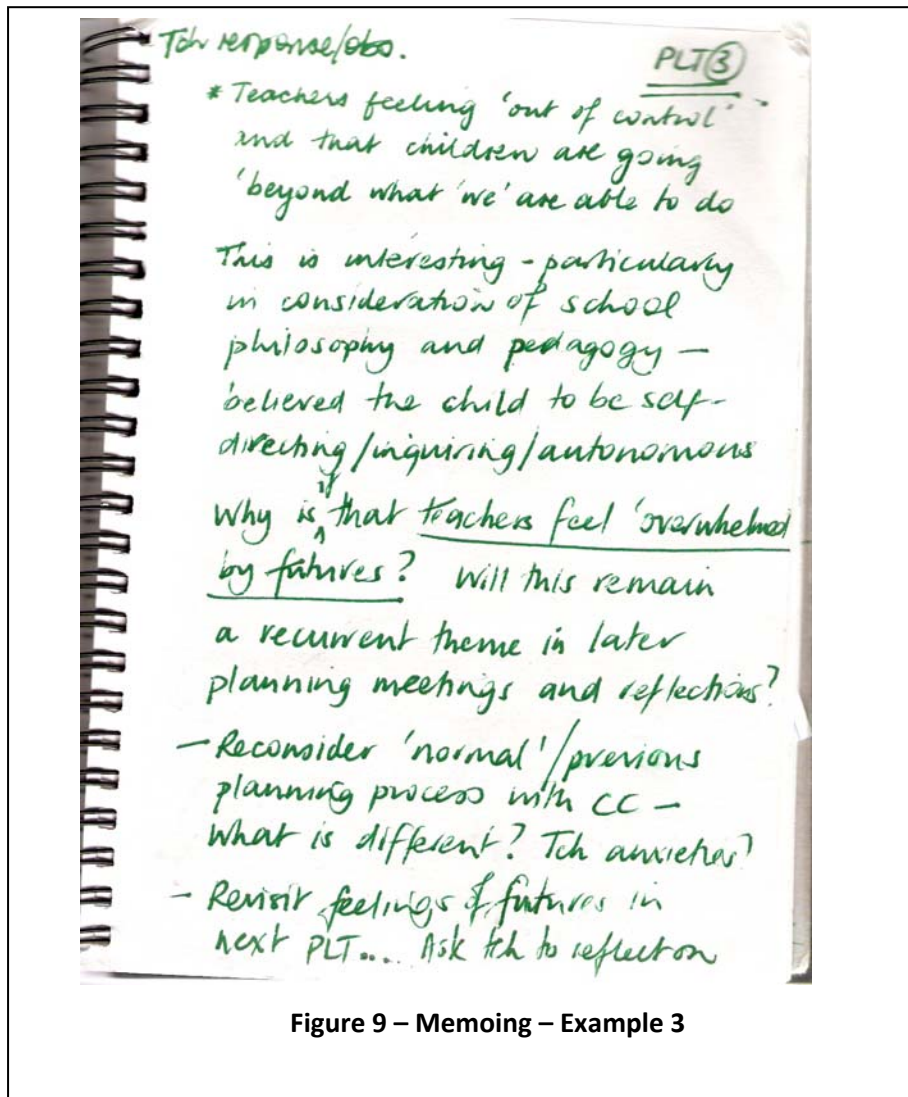 Tch response/obs.
PLT 3
* Teachers feeling 'out of control'
and that children are going
'beyond what 'we' are able to do
This is interesting - particularly
in consideration of school
philosophy and pedagogy —
believed the child to be self-
directing/inquiring/autonomous
Why is it that teachers feel 'overwhelmed
by futures? Will this remain
a recurrent theme in later
planning meetings and reflections?
- Reconsider 'normal'/previous
planning process with CC -
what is different? Tch anxieties?
- Revisit feelings of futures in
next PLT... Ask tch to reflect on
Figure 9 – Memoing – Example 3